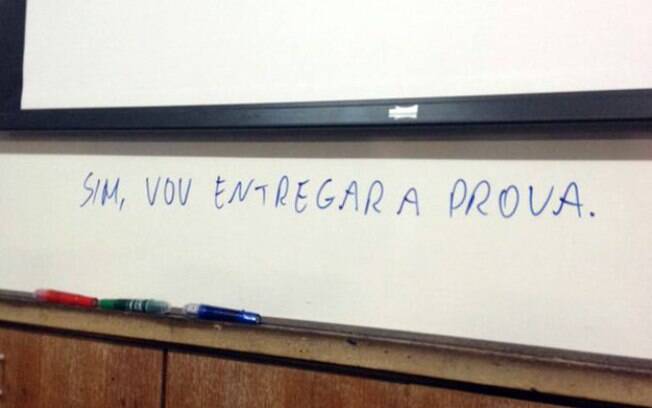 SIM, VOU ENTREGAR A PROVA.